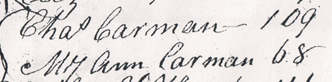 Chas Carman 109
My Ann Carman 68